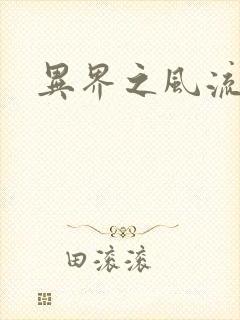 異界之風流
田滚滚